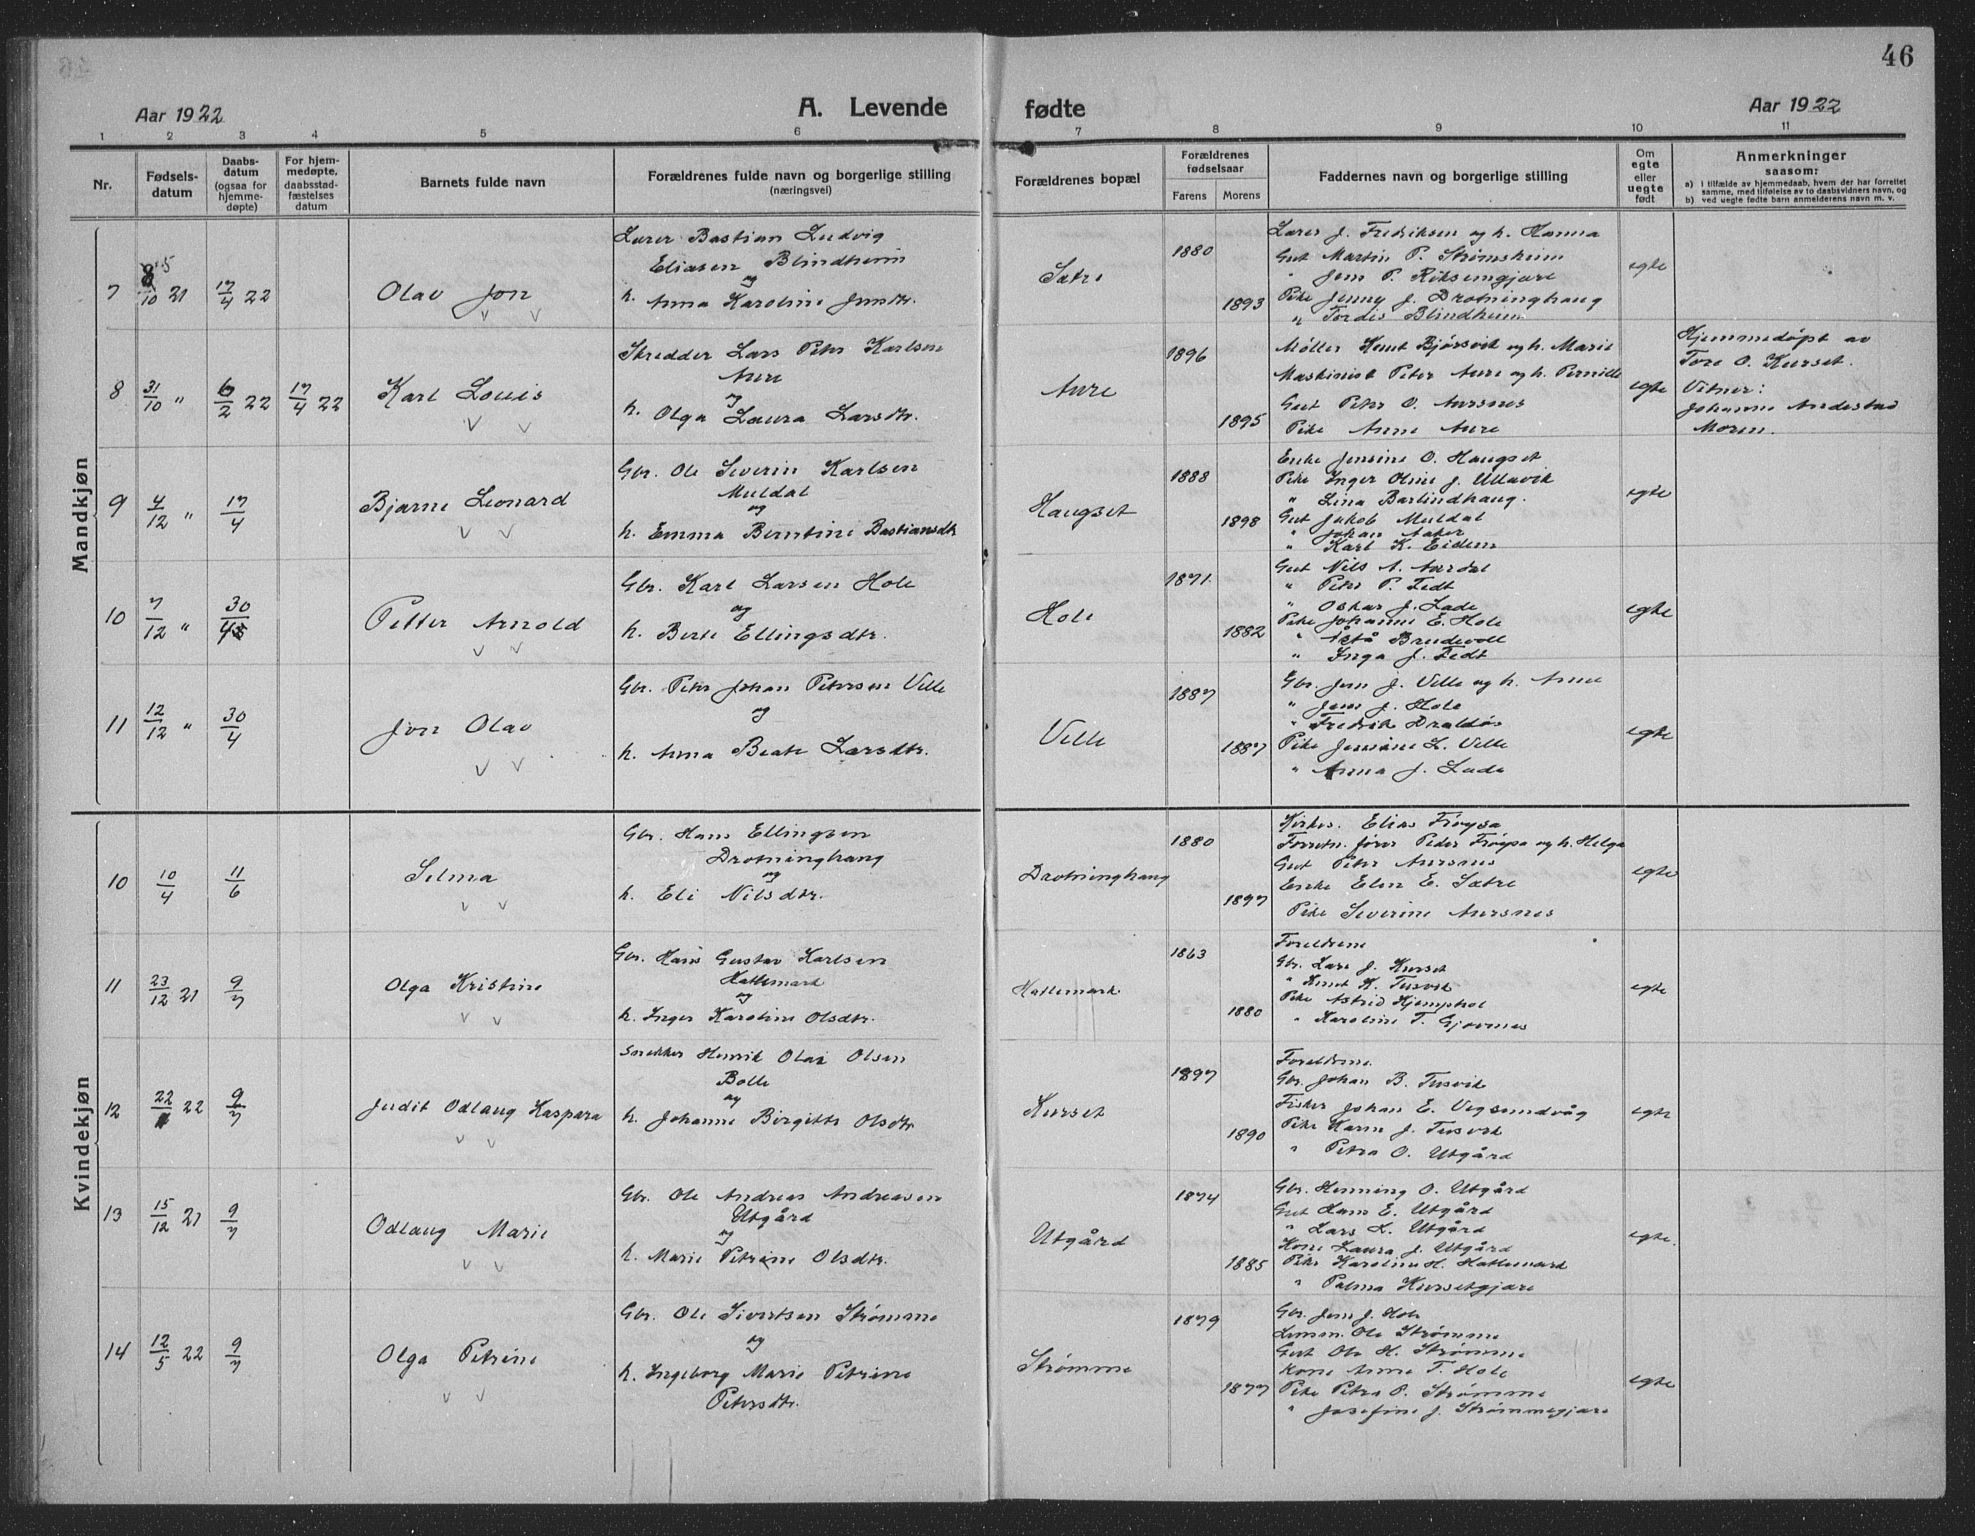 46
Aar 1922
A. Levende
fødte
Aar 1922
1 2 3 4 5 6 7 8 9 10 11
Nr.
Fødsels-
datum
Daabs-
datum
(ogsaa for
hjemme-
døpte)
For hjem-
medøpte,
daabsstad-
fæstelses
datum
Barnets fulde navn
Forældrenes fulde navn og borgerlige stilling
(næringsvei)
Forældrenes bopæl
Forældrenes
fødselsaar
Farens Morens
Faddernes navn og borgerlige stilling
Om
egte
eller
uegte
født
Anmerkninger
saasom:
a) i tilfælde av hjemmedaab, hvem der har forrettet
samme, med tilføielse av to daabsvidners navn, og
b) ved uegte fødte barn anmelderens navn m. v.
Mandkjøn
7 10 21 17/4 22
Olav Jon
Lærer Bastian Ludvig
Eliasen Blindheim
og
h. Anna Karoline Jensdtr.
Sætre
1880
1893
Lærer J. Fredriksen og h. Hanna
Gut Martin P. Strømsheim
" Jens P. Riksemgjære
Pike Jenny J. Drotninghaug
" Tordis Blindheim
egte
8 31/10 " 6/2 22 17/4 22
Karl Louis
Skredder Lars Peter Karlsen
Aure
og
h. Olga Laura Larsdtr.
Aure
1896
1895
Møller Knut Bjørsvik og h. Marie
Maskinist Peter Aure og h. Pernille
Gut Peter O. Aursnes
Pike Anne Aure
egte
Hjemmedøpt av
Tore O. Kurset.
Vitner:
Johanne Andestad
Moren.
9 4/12 " 17/4
Bjarne Leonard
Gbr. Ole Severin Karlsen
Muldal
og
h. Emma Berntine Bastiansdtr
Haugset
1888
1898
Enke Jensine O. Haugset
Pike Inger Oline J. Ullavik
" Lina Barlindhaug.
Gut Jakob Muldal
" Johan Aaker
" Karl K. Eidem
egte
10 7/12 " 30/4
Petter Arnold
Gbr. Karl Larsen Hole
og
h. Berte Ellingsdtr.
Hole
1871.
1882
Gut Nils A. Aardal
" Peter P. Tedt
" Oskar J. Lade
Pike Johanne E. Hole
" Åstå Brudevoll
" Inga J. Tedt
egte
11 12/12 " 30/4
Jon Olav
Gbr. Peter Johan Petersen Velle
og
h. Anna Beate Larsdtr.
Velle
1887
1887
Gbr. Jens J. Velle og h. Anne
" Jens J. Hole
" Fredrik Draldøs
Pike Jensine L. Velle
" Anna J. Lade
egte
Kvindekjøn
10 10/4 11/6
Selma
Gbr. Hans Ellingsen
Drotninghaug
og
h. Eli Nilsdtr.
Drotninghaug
1880
1897
Kirkes. Elias Frøysa
Forretn. fører Peder Frøysa og h. Helga
Gut Peter Aursnes
Enke Elen E. Sætre
Pike Severine Aursnes
egte
11 23/12 21 9/7
Olga Kristine
Gbr. Hans Gustav Karlsen
Hattemark
og
h. Inger Karoline Olsdtr.
Hattemark
1863
1880
Foreldrene
Gbr. Lars J. Kurset
" Knut K. Tusvik
Pike Astrid Hjemphol
" Karoline T. Gjævnes
egte
12 22 22 9/7
Judit Odlaug Kaspara
Snekker Henrik Olai Olsen
Bolle
og
h. Johanne Birgitte Olsdtr
Kurset
1897
1890
Foreldrene
Gbr. Johan B. Tusvik
Fisker Johan E. Vegsundvåg
Pike Karen J. Tusvik
" Petra O. Utgård
egte
13 15/12 21 9/7
Odlaug Marie
Gbr. Ole Andreas Andreasen
Utgård
og
h. Marie Petrine Olsdtr.
Utgård
1874
1885
Gbr. Henning O. Utgård
Gut Hans E. Utgård
" Lars L. Utgård
Kone Laura J. Utgård
Pike Karoline H. Hattemark
" Palma Kursetgjære
egte.
14 12/5 22 9/7
Olga Petrine
Gbr. Ole Sivertsen Strømme
og
h. Ingeborg Marie Petrine
Petersdtr.
Strømme
1879
1877
Gbr. Jens J. Hole
Ole Strømme
Gut Ole H. Strømme
Kone Anne T. Hole
Pike Petra P. Strømme
" Josefine J. Strømmegjære
egte